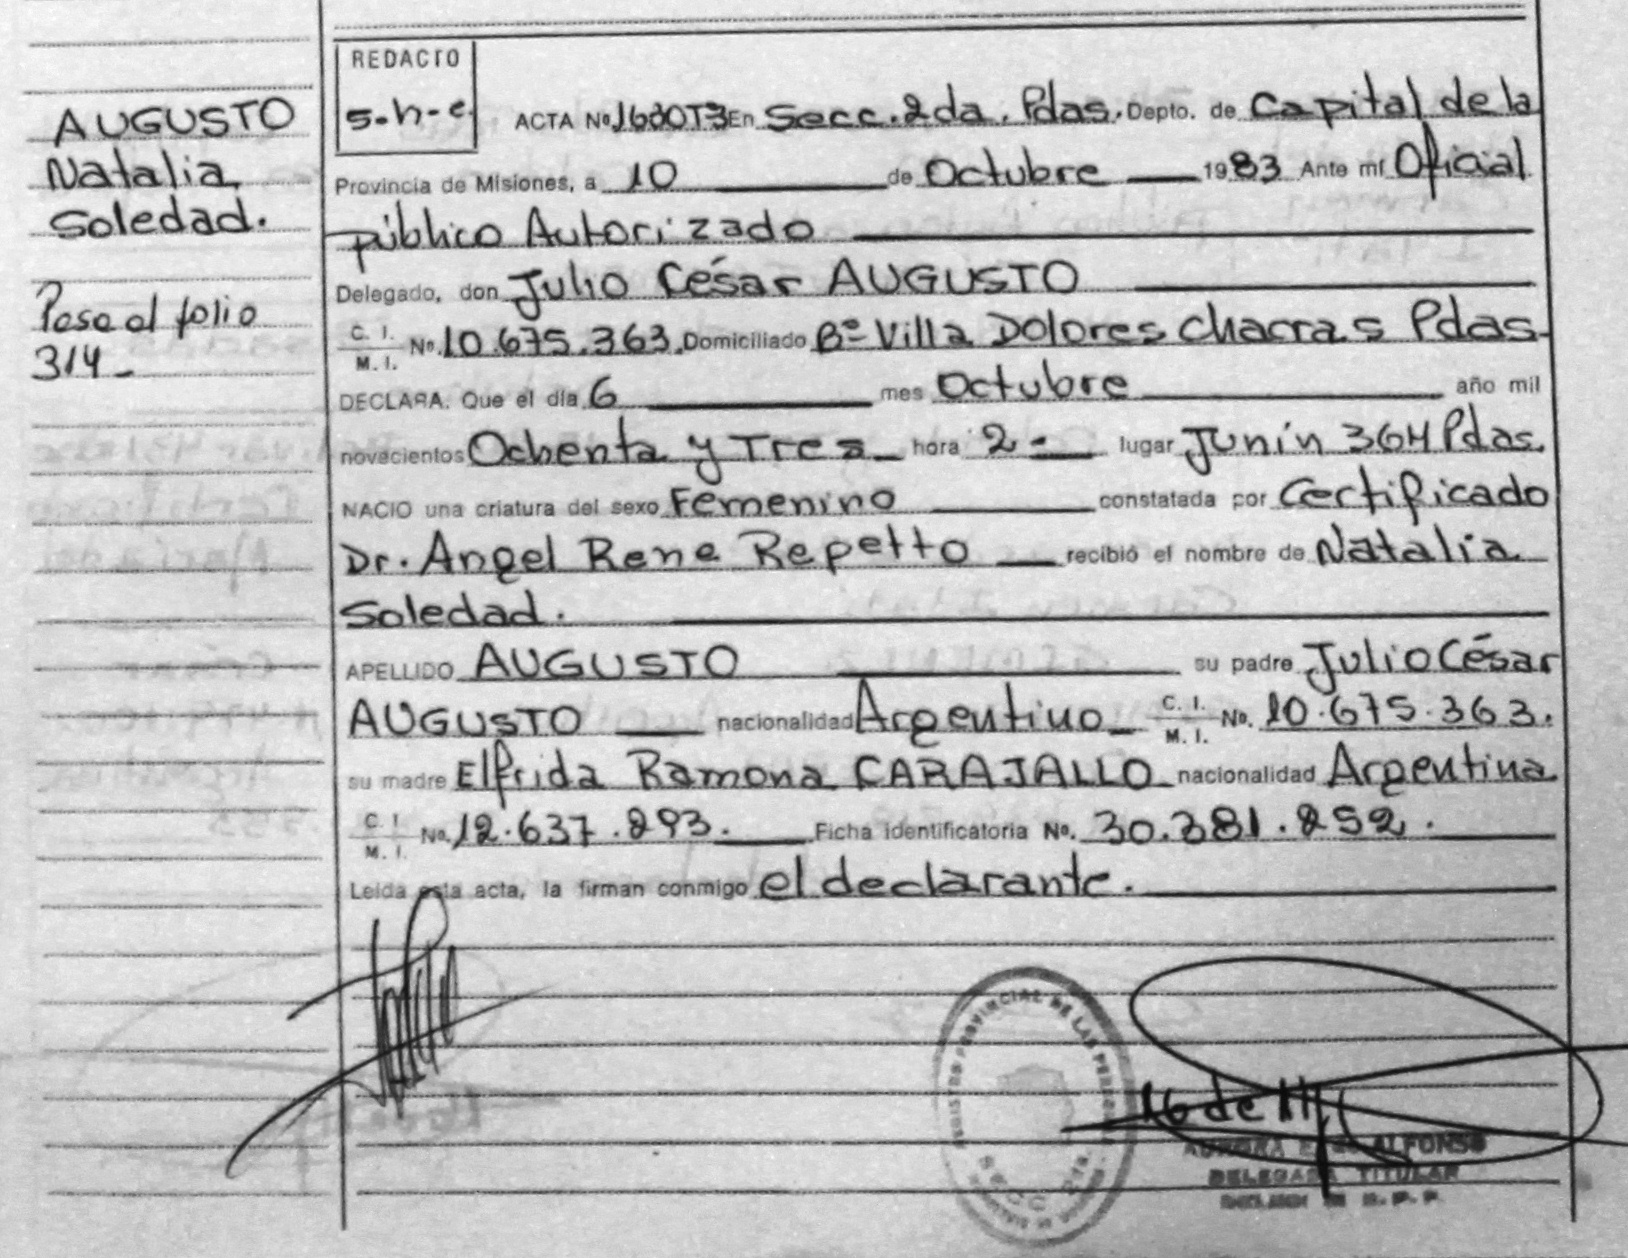 AUGUSTO
Natalia
Soledad.
Pase al folio
314-
REDACTO
s-h-e.
ACTA Nº 1600T3 En Secc. 2da. Pdas. Depto. de Capital de la
Provincia de Misiones, a 10 de Octubre 1983 Ante mí Oficial
público Autorizado
Delegado, don Julio César AUGUSTO
C. I. M. I. Nº. 10.675.363. Domiciliado Bº Villa Dolores Chacras Pdas-
DECLARA: Que el día 6 mes Octubre año mil
novecientos Ochenta y Tres hora 2- lugar Junín 364 Pdas.
NACIO una criatura del sexo Femenino constatada por Certificado
Dr. Angel Rene Repetto recibió el nombre de Natalia
Soledad.
APELLIDO AUGUSTO su padre Julio César
AUGUSTO nacionalidad Argentino C. I. M. I. Nº. 10.675.363.
su madre Elfrida Ramona CARAJALLO nacionalidad Argentina
C. I. M. I. Nº. 12.637.293. Ficha identificatoria Nº. 30.381.252.
Leída esta acta, la firman conmigo el declarante.
PROVINCIAL DE LAS PERSONAS
SECC. 2da.
16 de
ALFONSO
DELEGADA TITULAR